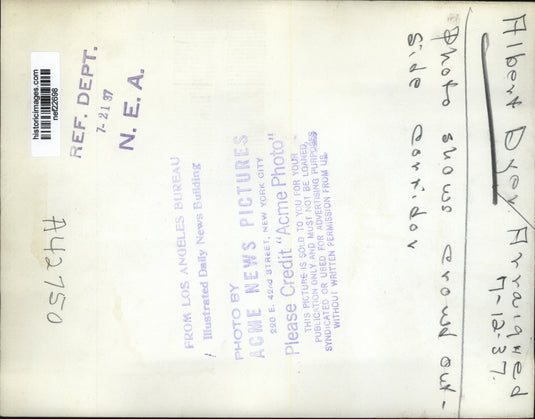 Albert Dyer, Arraigned
7-12-37.
Photo shows crowd out-
side corridor
historicimages.com
nef22698
REF. DEPT.
7-21 37
N. E. A.
FROM LOS ANGELES BUREAU
Illustrated Daily News Building
PHOTO BY
ACME NEWS PICTURES
220 E. 42nd STREET, NEW YORK CITY
Please Credit "Acme Photo"
THIS PICTURE IS SOLD TO YOU FOR YOUR
PUBLICATION ONLY AND MUST NOT BE LOANED,
SYNDICATED OR USED FOR ADVERTISING PURPOSES
WITHOUT WRITTEN PERMISSION FROM US.
A42750